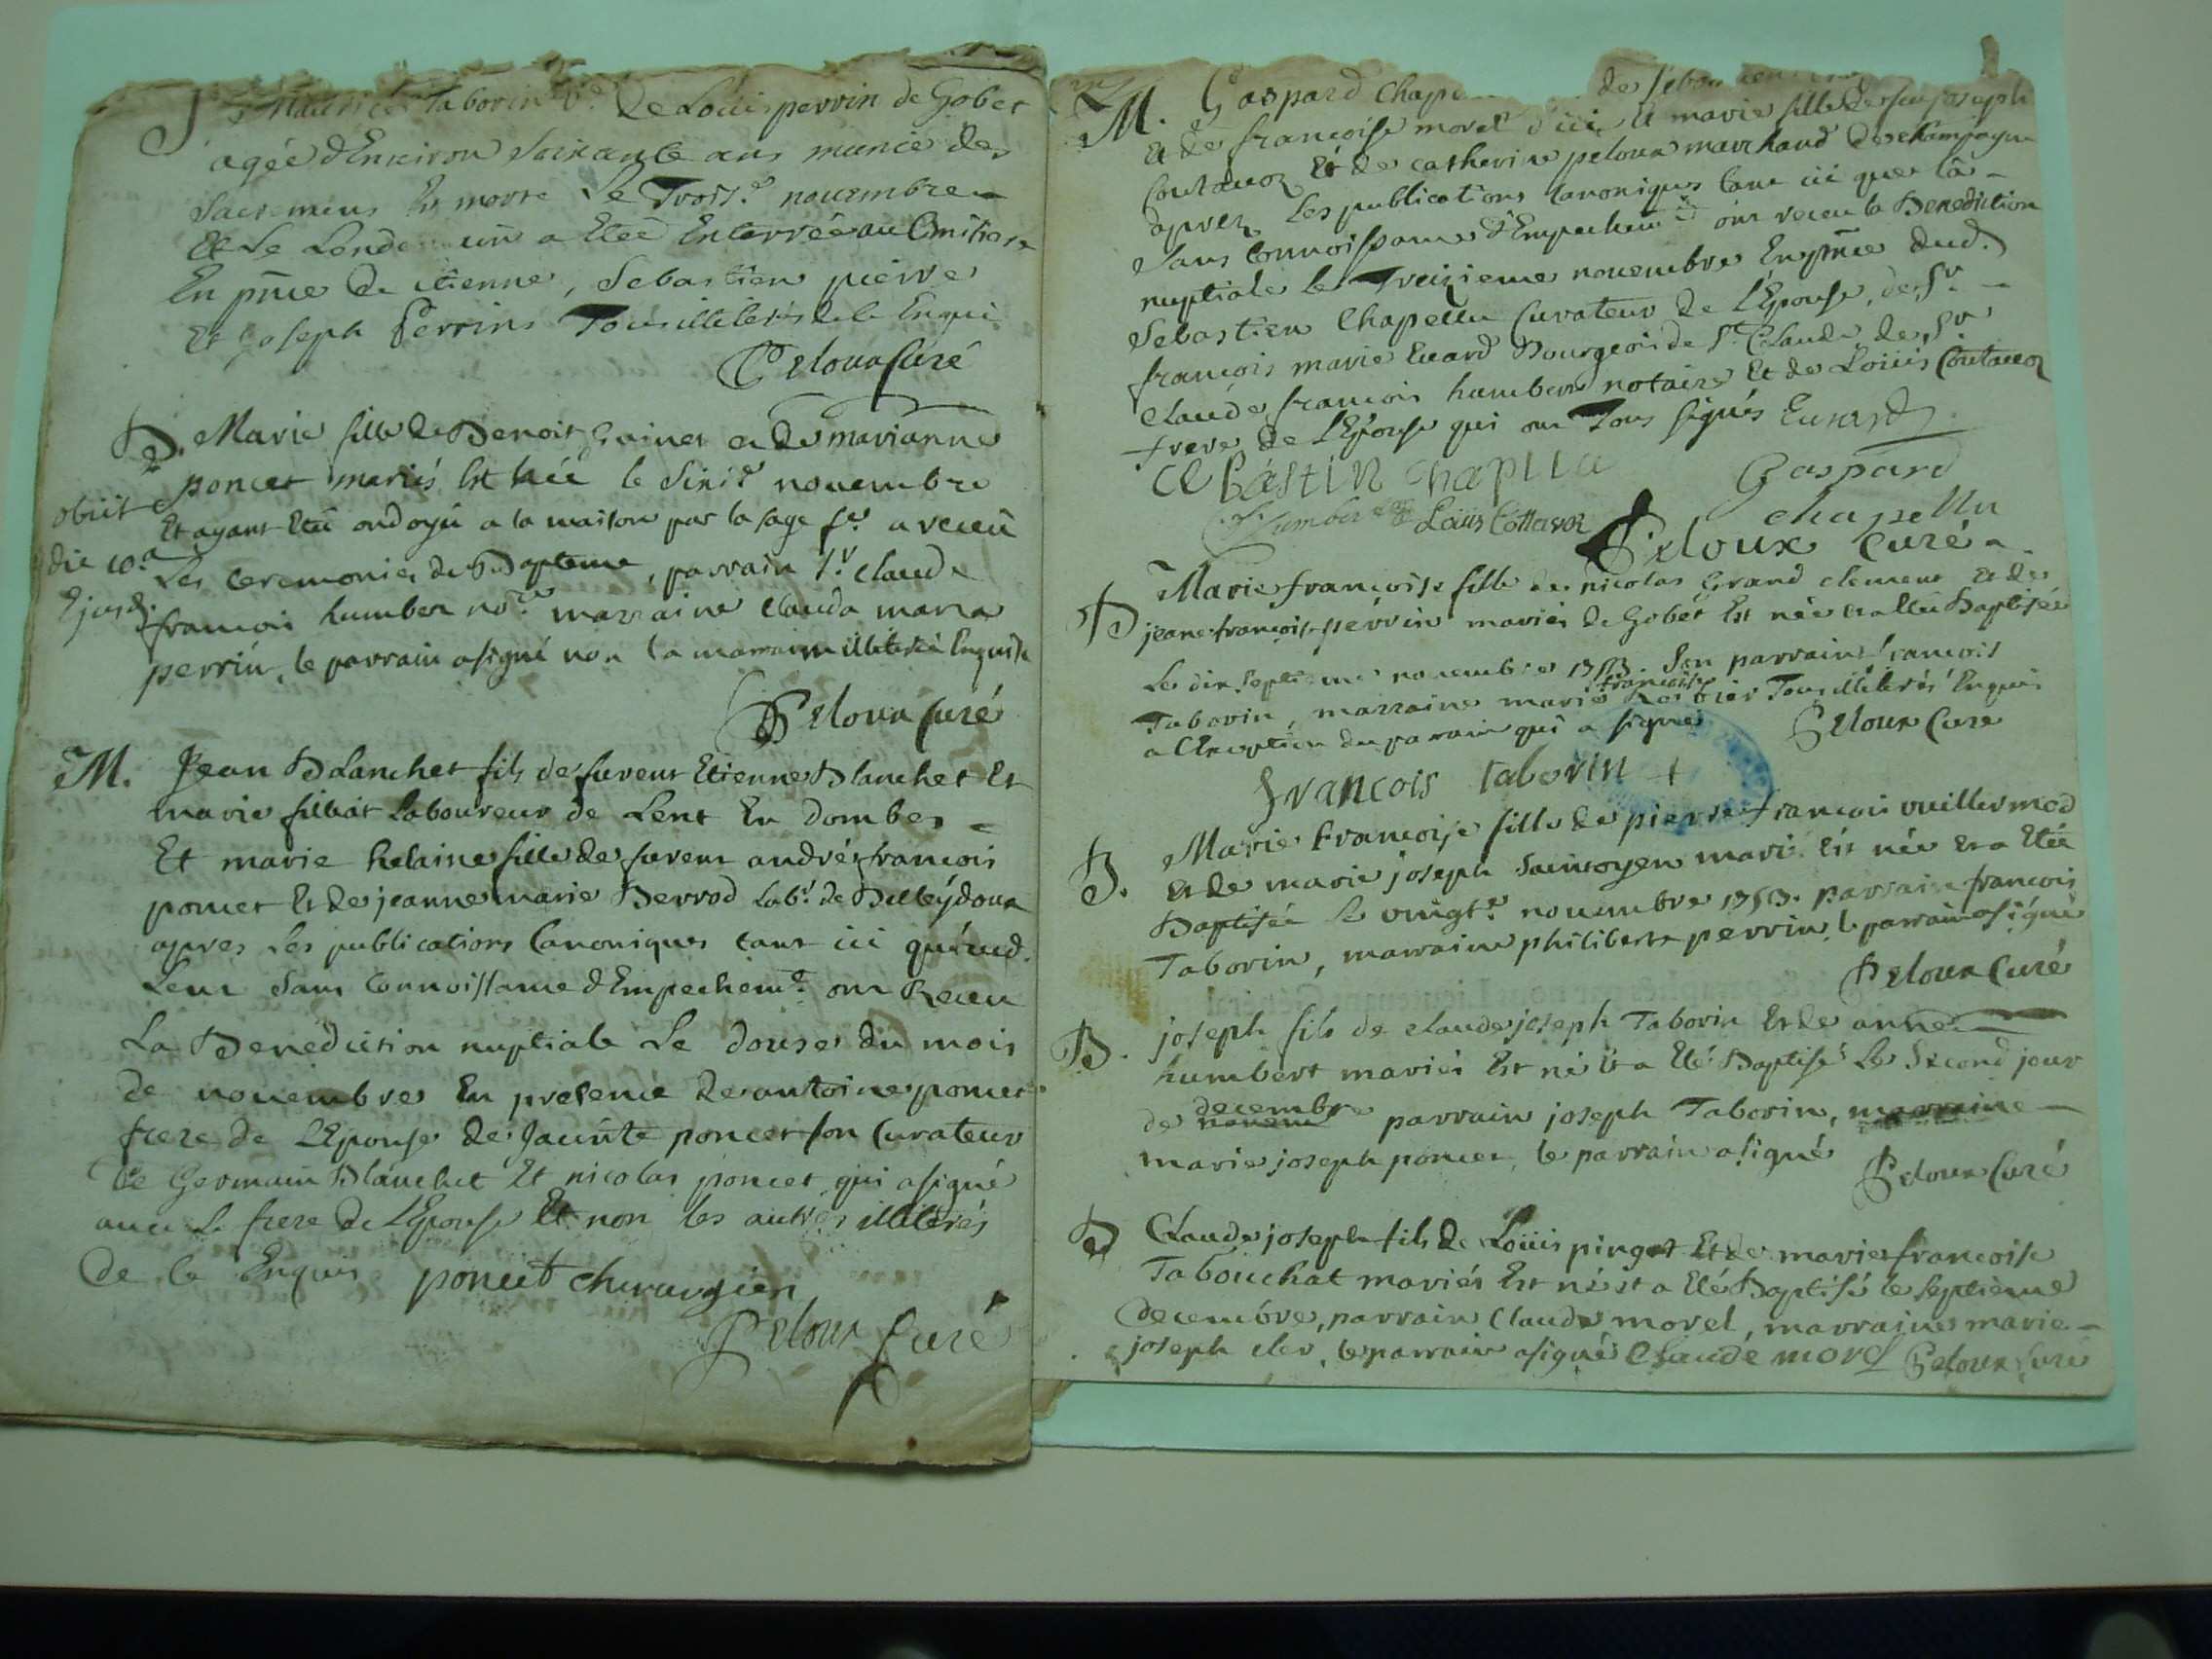 Taborin v.e de Louis perrin de Gobet
agée d'Environ Soixante ans munie des
Sacremens Est morte Le Trois.e novembre
Et Le Lendemain a Eteé Enterrée au Cimitiere
En pñce de etienne, Sebastien pierre
Et joseph Perrins Tous illiterés de le Enquis
Peloux Curé
B. Marie fille de Benoit Gainet et de marianne
poncet mariés Est née le Sixi.e novembre
obiit
Et ayant Eté ondoyée a la maison par la sage f.e a receu
die 10.a
Les Ceremonies du Bapteme, parrain S.r claude
Ejusd.
francois humbert no.re marraine clauda maria
perrin, le parrain a signé non la marraine illiterée Enquise
Peloux Curé
M. Jean Blanchet fils de fureur Etienne Blanchet Et
marie filliat Laboureur de Lent En dombes
Et marie helaine fille de fureur andré francois
poncet Et de jeanne marie Berrod Lab.r de Belleydoux
apres Les publications Canoniques tant ici qu'aud.
Lent Sans Connoissance d'Empechem.t ont Receu
La Benediction nuptiale Le douse du mois
de novembre En presence de antoine poncet
frere de L'Epouse de Jacinte poncet son Curateur
de Germain Blanchet Et nicolas poncet qui a signé
avec Le frere de L'Epouse Et non les autres illiterés
de le Enquis poncet chirurgien
Peloux Curé
M. Gaspard Chape de Sebastien
Et de francoise morel d'ici Et marie fille de feu joseph
Coutavoz Et de catherine peloux marchand de champagne
aprez Les publications Canoniques tant ici que là
Sans Connoissance d'Empechem.t ont receu la Benediction
nuptiale le Treizieme novembre En pñce dud.
Sebastien Chapellu Curateur de L'Epouse, de S.r
francois marie Evard Bourgeois de S.t Claude, de S.r
Claude francois humbert notaire Et de Loüis Coutavoz
frere de L'Epouse qui ont Tous signés Evrard
CeBastin chapllu Gaspard
Humbert Loüis Cottavoz chapellu
Peloux Curé
B Marie francoise fille de nicolas Grand clement Et de
jeane francoise perrin mariés de Gobet Est née Et a Eté Baptisée
Le dix Septieme novembre 1753. Son parrain francois
francoise
Taborin, marraine marie Tous illiterés Enquis
a L'Exception du parrain qui a signé Peloux Curé
francois taborin +
B. Marie Francoise fille de pierre francois vuillermod
Et de marie joseph Saintoyen mariés Est née Et a Etée
Baptisée Le vingt.e novembre 1753. parrain francois
Taborin, marraine philiberte perrin, le parrain a signé
Peloux Curé
B. joseph fils de claude joseph Taborin Et de anne
humbert mariés Est né Et a Eté Baptisé Le Second jour
decembre
de novem parrain joseph Taborin, marraine
marie joseph poncet, le parrain a signé
Peloux Curé
B Claude joseph fils de Loüis pinget Et de marie francoise
Tabouchat mariés Est né Et a Eté Baptisé le Septieme
decembre, parrain Claude morel, marraine marie
joseph, le parrain a signé Claude morel Peloux Curé